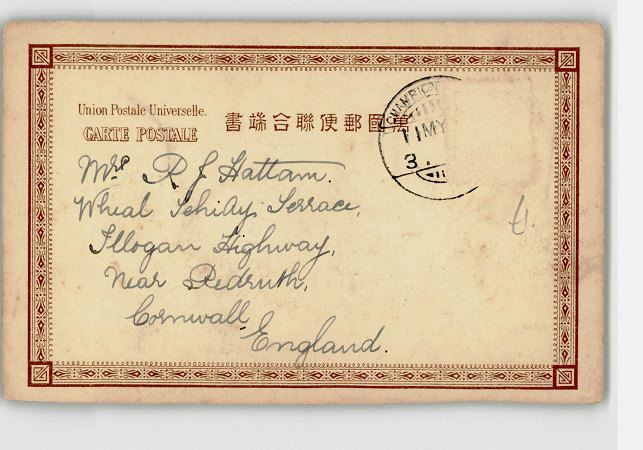 Union Postale Universelle.
CARTE POSTALE
書端合聯便郵國萬
CHAMPION
11 MY
3.
Mrs R J Hattam.
Wheal Tehidy Terrace,
Illogan Highway,
Near Redruth,
Cornwall
England.